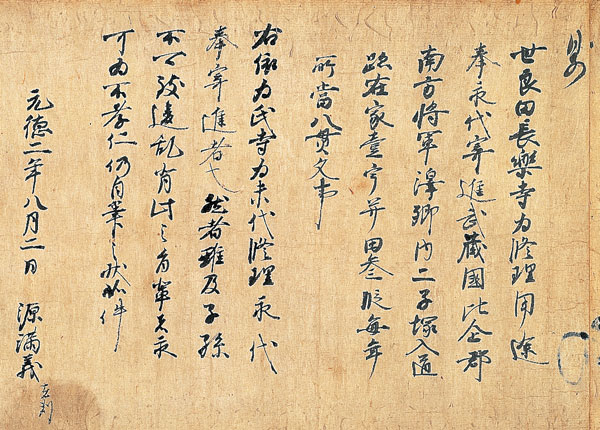 世良田長樂寺為修理用途
奉永代寄進武藏國比企郡
南方将軍澤郷内二子塚入道
跡在家壹宇并田叁段毎年
所當八貫文事
右依為氏寺為末代修理永代
奉寄進者也然者雖及子孫
不可致違乱有背之旨輩者永
可為不孝仁仍自筆之状如件
元徳二年八月二日 源満義 在判